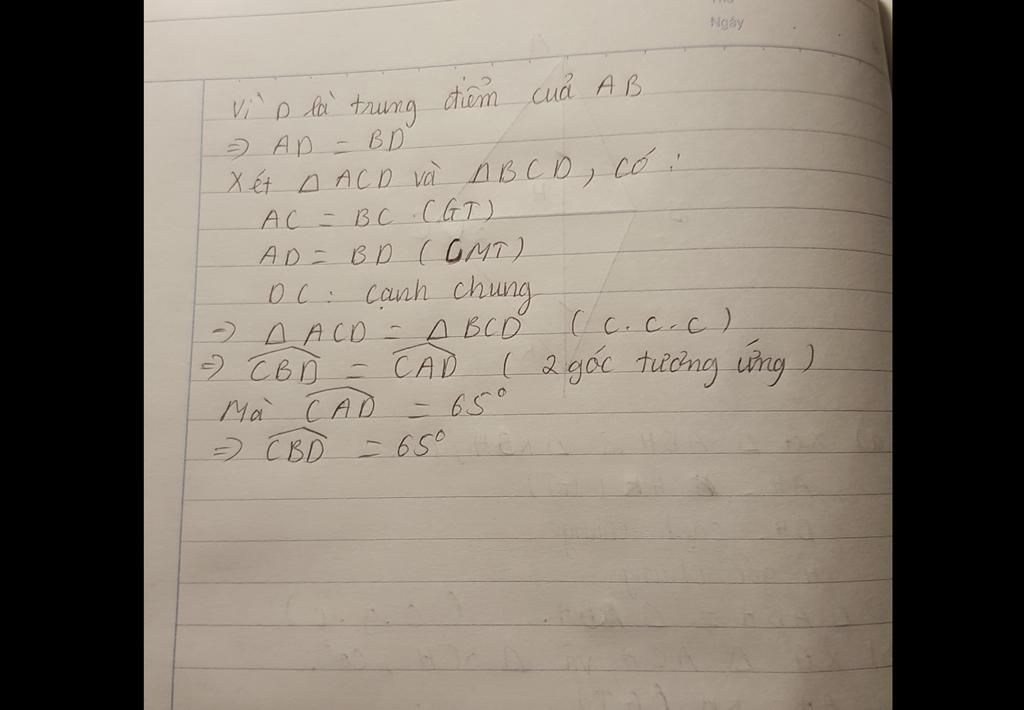 Ngày
Vì D là trung điểm cuả AB
=> AD = BD
Xét Δ ACD và ΔBCD, có :
AC = BC (GT)
AD = BD (CMT)
DC : cạnh chung
=> Δ ACD = Δ BCD (c.c.c)
=> \widehat{CBD} = \widehat{CAD} (2 góc tương ứng)
Mà \widehat{CAD} = 65°
=> \widehat{CBD} = 65°